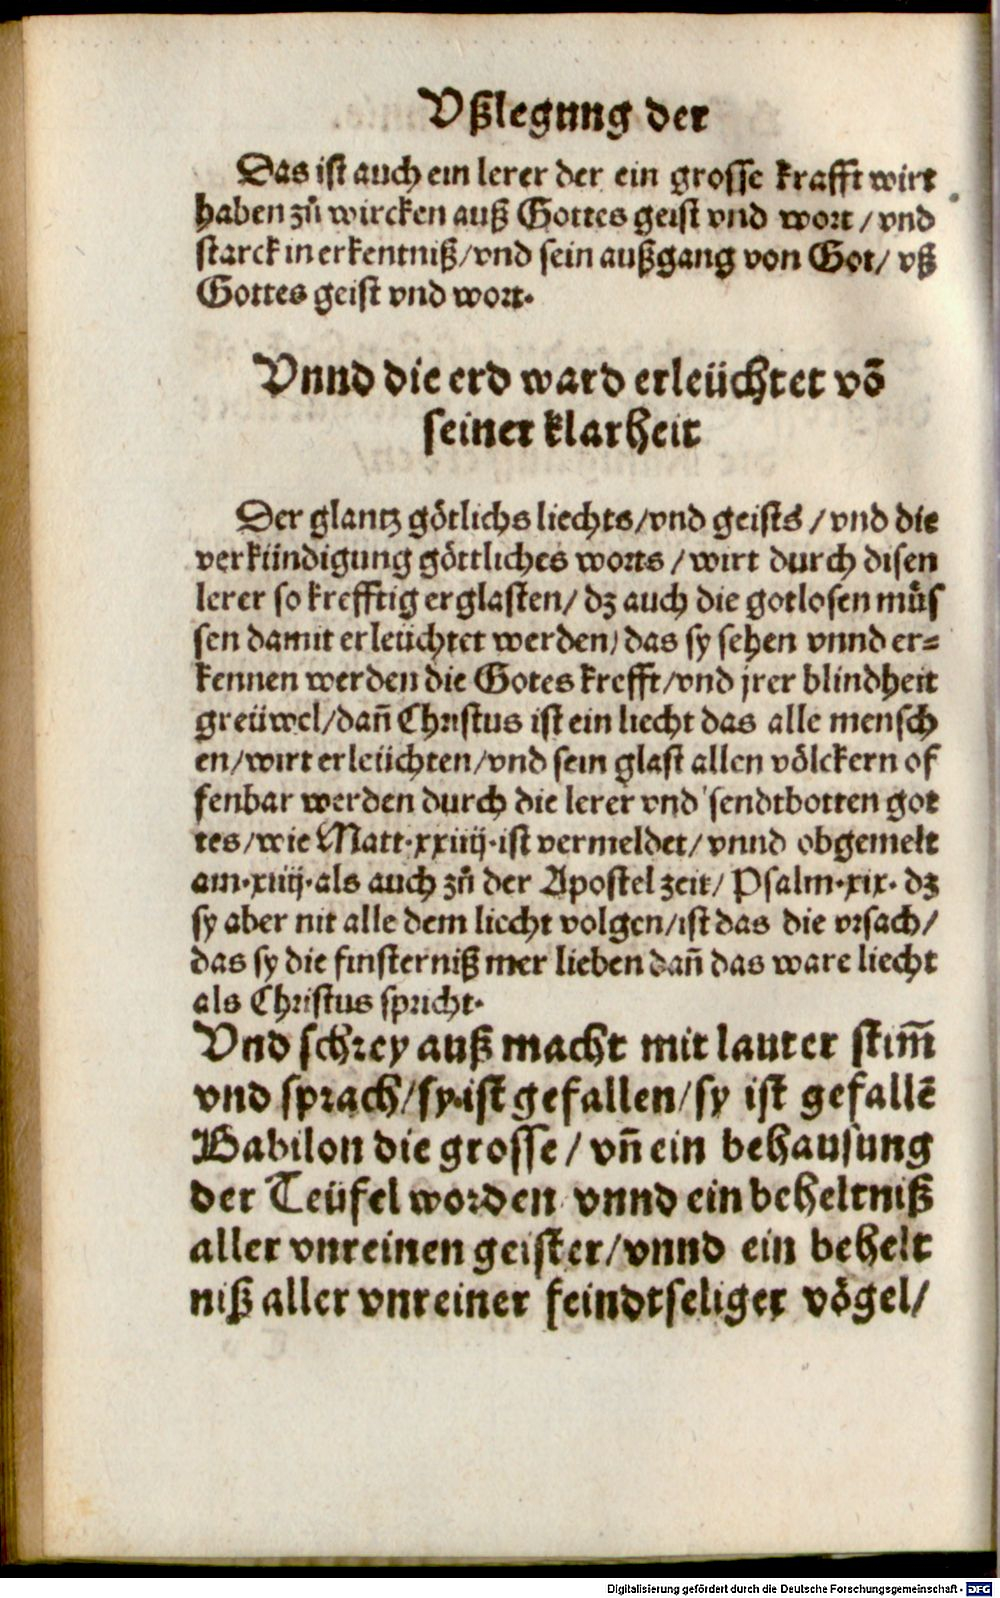 Vßlegung der
Das ist auch ein lerer der ein grosse krafft wirt
haben zů wircken auß Gottes geist vnd wort / vnd
starck in erkentniß / vnd sein außgang von Got / vß
Gottes geist vnd wort.
Vnnd die erd ward erleüchtet võ
seiner klarheit
Der glantz götlichs liechts / vnd geists / vnd die
verkündigung göttliches worts / wirt durch disen
lerer so krefftig erglasten / dz auch die gotlosen můs
sen damit erleüchtet werden / das sy sehen vnnd er=
kennen werden die Gotes krefft / vnd jrer blindheit
greüwel / dañ Christus ist ein liecht das alle mensch
en / wirt erleüchten / vnd sein glast allen völckern of
fenbar werden durch die lerer vnd sendtbotten got
tes / wie Matt.xxiiij.ist vermeldet / vnnd obgemelt
am.xiiij.als auch zů der Apostel zeit / Psalm.xix. dz
sy aber nit alle dem liecht volgen / ist das die vrsach /
das sy die finsterniß mer lieben dañ das ware liecht
als Christus spricht.
Vnd schrey auß macht mit lauter stim̃
vnd sprach / sy.ist gefallen / sy ist gefallẽ
Babilon die grosse / vñ ein behausung
der Teüfel worden vnnd ein beheltniß
aller vnreinen geister / vnnd ein behelt
niß aller vnreiner feindtseliger vögel /
Digitalisierung gefördert durch die Deutsche Forschungsgemeinschaft - DFG